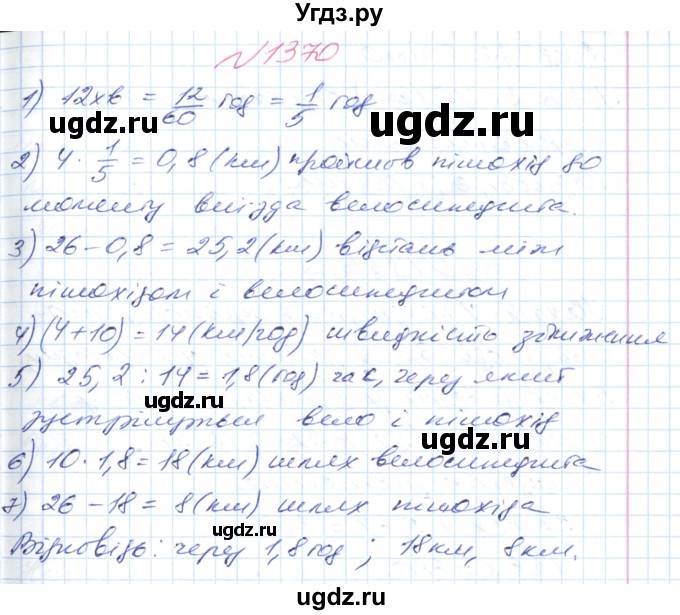 Угдз.ру
№1370
1) 12хв = 12/60 год = 1/5 год
ugdz.ru
ugdz.ru
2) 4 · 1/5 = 0,8 (км) пройшов пішохід до
моменту виїзда велосипедиста.
3) 26 - 0,8 = 25,2 (км) відстань між
ugdz.ru
пішохідом і велосипедистом
4) (4+10) = 14 (км/год) швидкість зближення
ugdz.ru
5) 25,2 : 14 = 1,8 (год) час, через який
ugdz.ru
зустрінуться вело і пішохід
ugdz.ru
6) 10 · 1,8 = 18 (км) шлях велосипедиста
7) 26 - 18 = 8 (км) шлях пішохіда
ugdz.ru
ugdz.ru
Відповідь: через 1,8 год ; 18 км, 8 км.
ugdz.ru